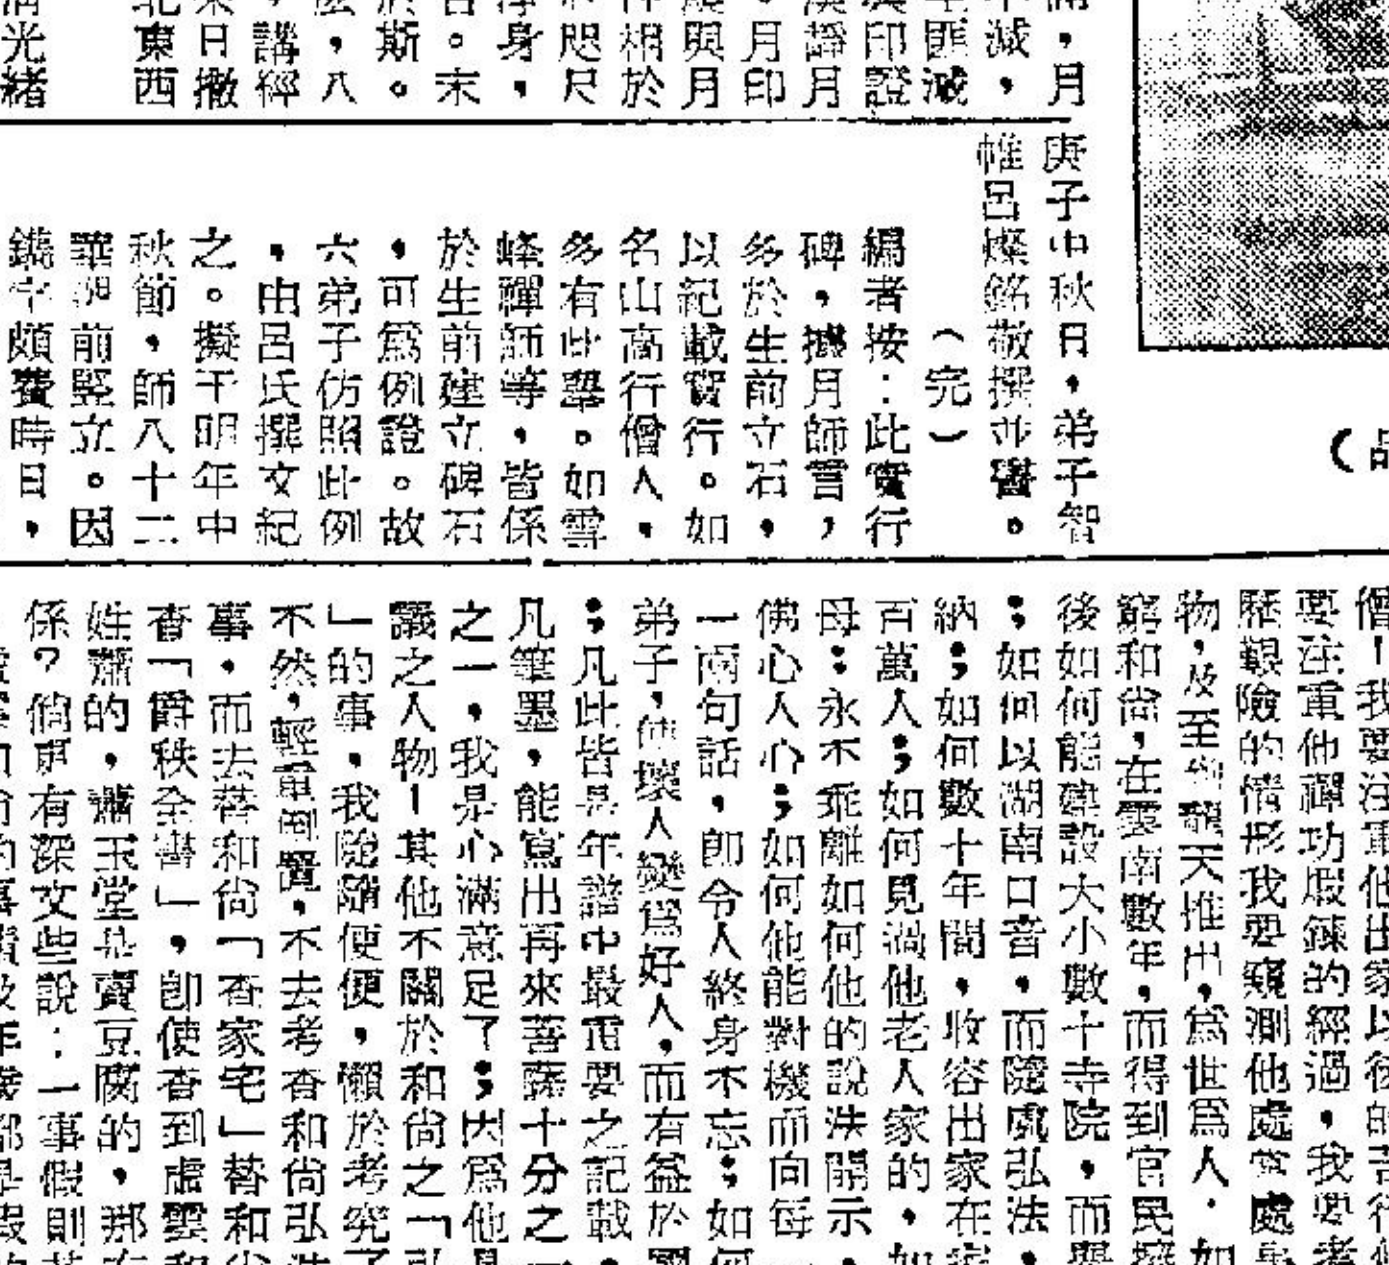 開，月
不滅，
匪滅
印證
靜月
。月印
與月
相於
咫尺
身，
。末
斯。
，八
講經
日撤
東西
光緒
庚子中秋日，弟子智
帷呂燦銘敬撰並書。
（完）
編者按：此實行
碑，據月師言，
多於生前立石，
以紀載實行。如
名山高行僧人，
多有此舉。如雪
峰禪師等，皆係
於生前建立碑石
，可爲例證。故
六弟子仿照此例
，由呂氏撰文紀
之。擬于明年中
秋節，師八十二
華誕前豎立。因
鐫字頗費時日，
（品
僧！我要注重他出家以後的苦行
要注重他禪功煅鍊的經過，我要考
歷艱險的情形我要窺測他處常處
物，及至龍天推出，爲世爲人．如
窮和尚，在雲南數年，而得到官民
後如何能建設大小數十寺院，而
；如何以湖南口音，而隨處弘法，
納；如何數十年間，收容出家在
百萬人；如何見過他老人家的，如
母；永不乖離如何他的說法開示，
佛心人心；如何他能對機而向每
一兩句話，卽令人終身不忘；如何
弟子，使壞人變爲好人，而有益於國
；凡此皆是年譜中最重要之記載，
凡筆墨，能寫出再來菩薩十分之
之一，我是心滿意足了；因爲他是
議之人物！其他不關於和尚之「弘
」的事，我隨隨便便，懶於考究了
不然，輕重倒置，不去考查和尚弘法
事，而去替和尚「查家宅」替和尚
查「爵秩全書」，卽使查到虛雲和
姓蕭的，蕭玉堂是賣豆腐的，那有
係？倘更有深文些說：一事假則
的事蹟及年歲都是假的